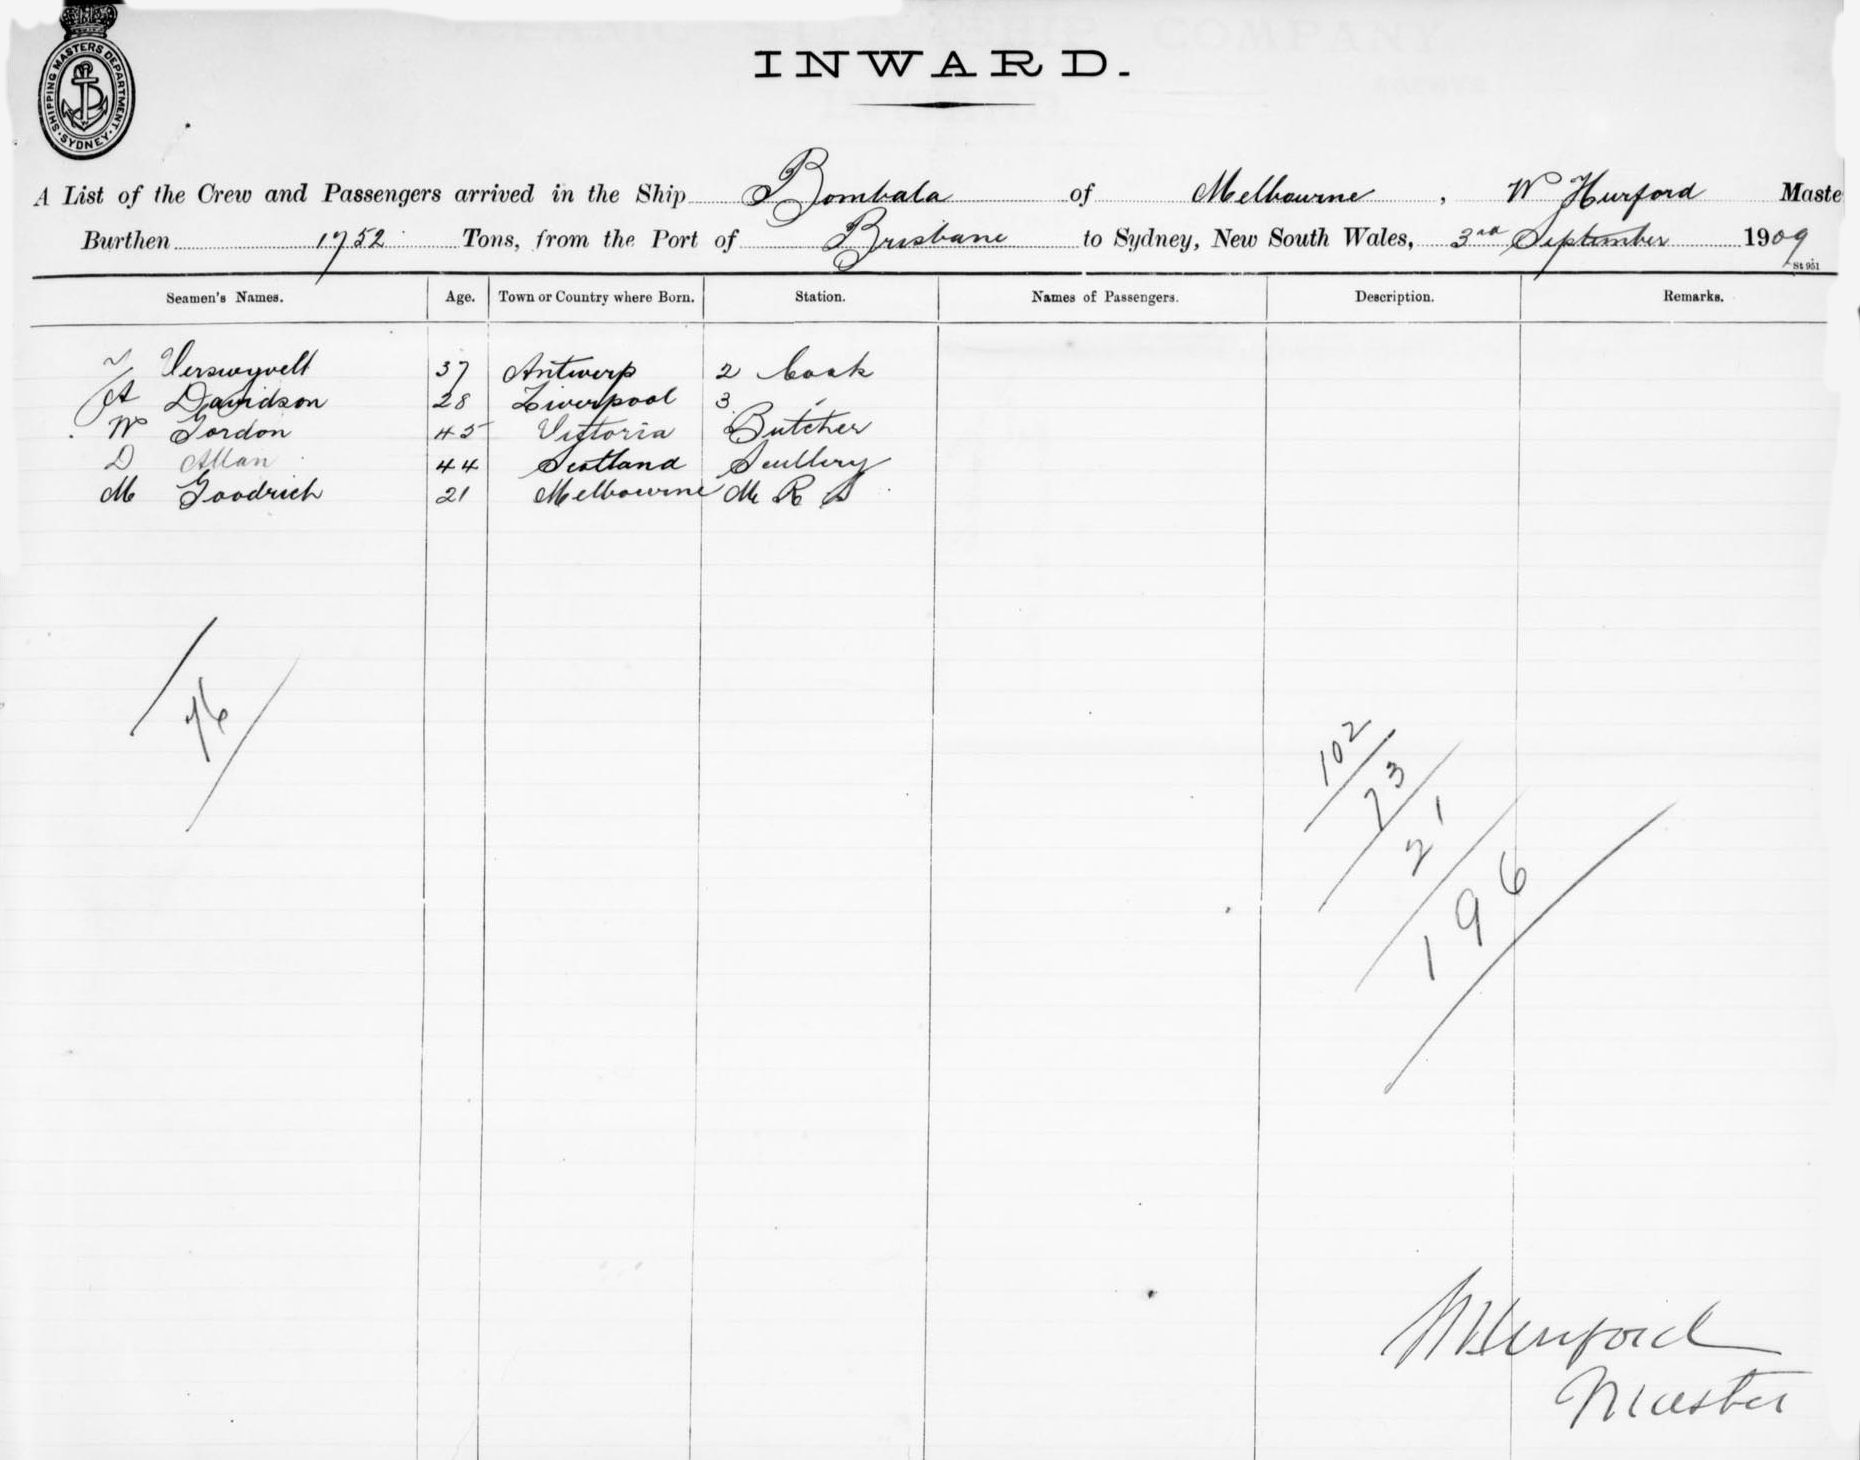 SHIPPING MASTERS DEPARTMENT
SYDNEY
INWARD.
A List of the Crew and Passengers arrived in the Ship Bombala of Melbourne, W Hurford Maste
Burthen 1752 Tons, from the Port of Brisbane to Sydney, New South Wales, 3rd September 1909
St 951
Seamen's Names. Age. Town or Country where Born. Station. Names of Passengers. Description. Remarks.
Verswyvelt 37 Antwerp 2 Cook
A Davidson 28 Liverpool 3 "
W Gordon 45 Victoria Butcher
D Allan 44 Scotland Scullery
M Goodrich 21 Melbourne M R S
76
102
73
21
196
W Hurford
Master